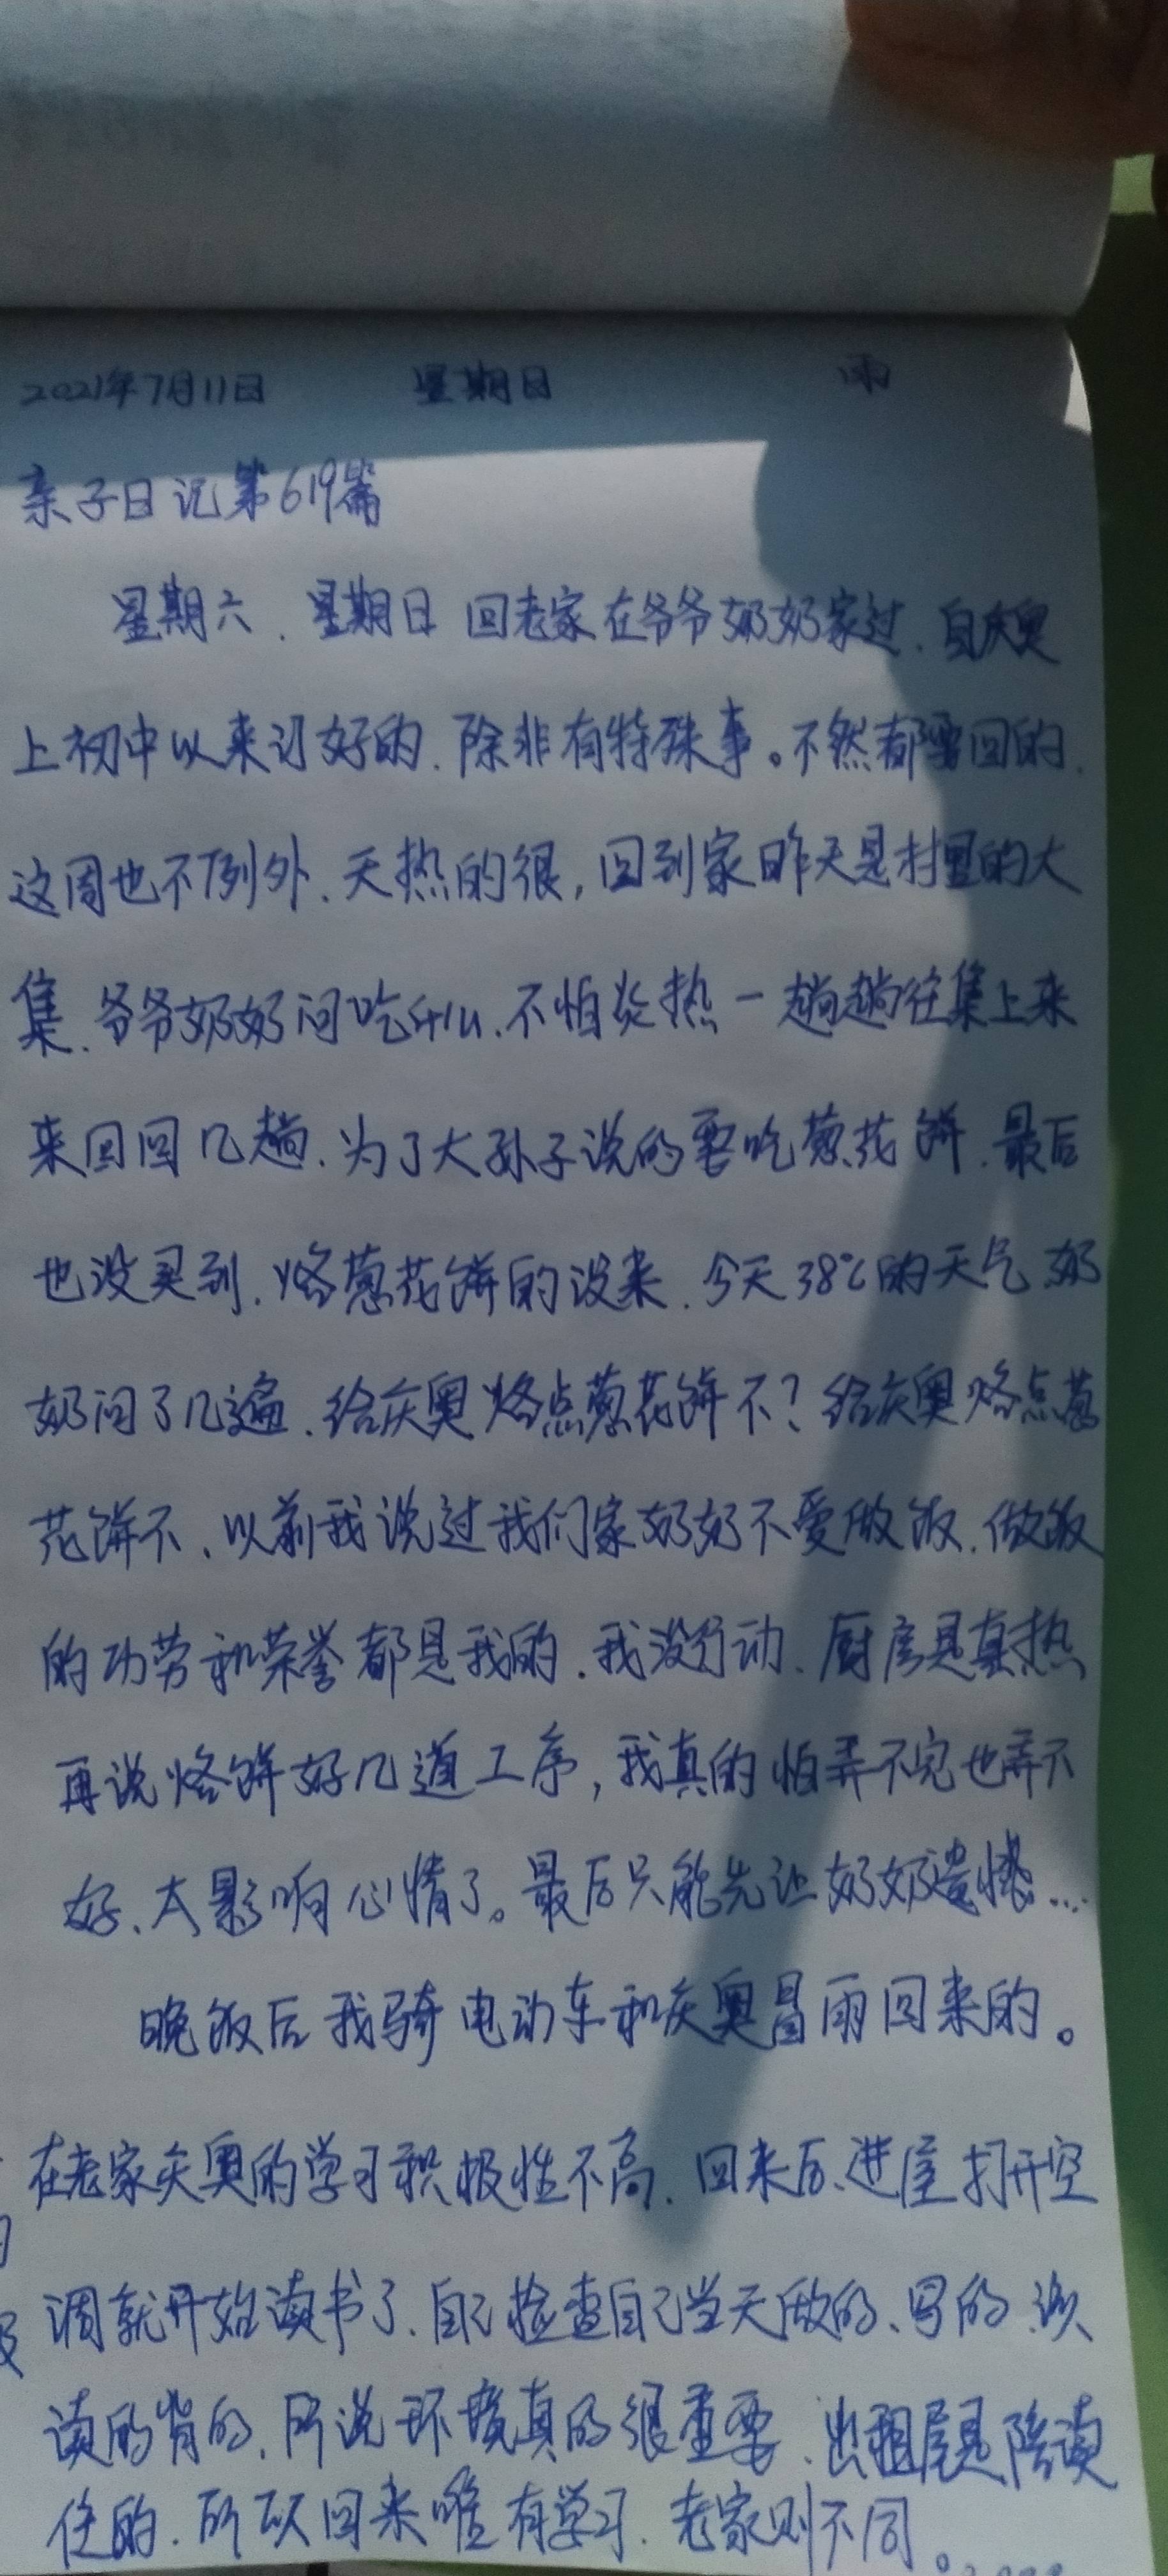 2021年7月11日 星期日 雨
亲子日记第619篇
星期六、星期日回老家在爷爷奶奶家过、自庆奥
上初中以来订好的、除非有特殊事。不然都要回的、
这周也不例外、天热的很，回到家昨天是村里的大
集、爷爷奶奶问吃什么、不怕炎热一趟趟往集上来
来回回几趟、为了大孙子说的要吃葱花饼、最后
也没买到、烙葱花饼的没来、今天38℃的天气、奶
奶问了几遍、给庆奥烙点葱花饼不？给庆奥烙点葱
花饼不、以前我说过我们家奶奶不爱做饭、做饭
的功劳和荣誉都是我的、我没行动、厨房是真热
再说烙饼好几道工序，我真的怕弄不完也弄不
好、太影响心情了。最后只能先让奶奶遗憾…
晚饭后我骑电动车和庆奥冒雨回来的。
在老家庆奥的学习积极性不高、回来后、进屋打开空
调就开始读书了、自己检查自己当天做的、写的、该
读的背的、所说环境真的很重要、出租屋是陪读
住的、所以回来唯有学习、老家则不同。